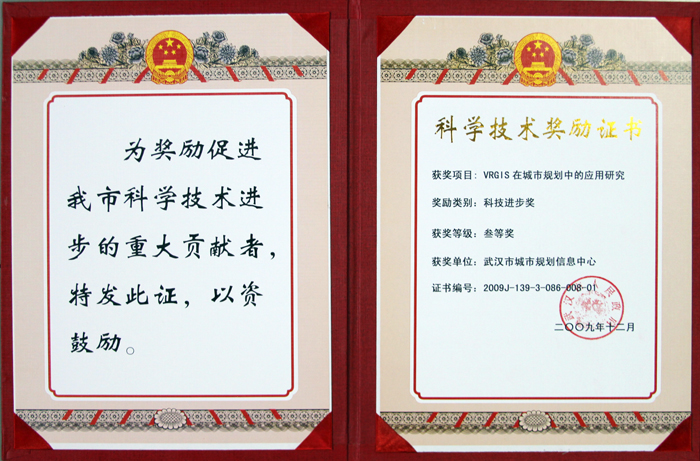 为奖励促进
我市科学技术进
步的重大贡献者，
特发此证，以资
鼓励。
科学技术奖励证书
获奖项目：VRGIS在城市规划中的应用研究
奖励类别：科技进步奖
获奖等级：叁等奖
获奖单位：武汉市城市规划信息中心
证书编号：2009J-139-3-086-008-01
二〇〇九年十二月